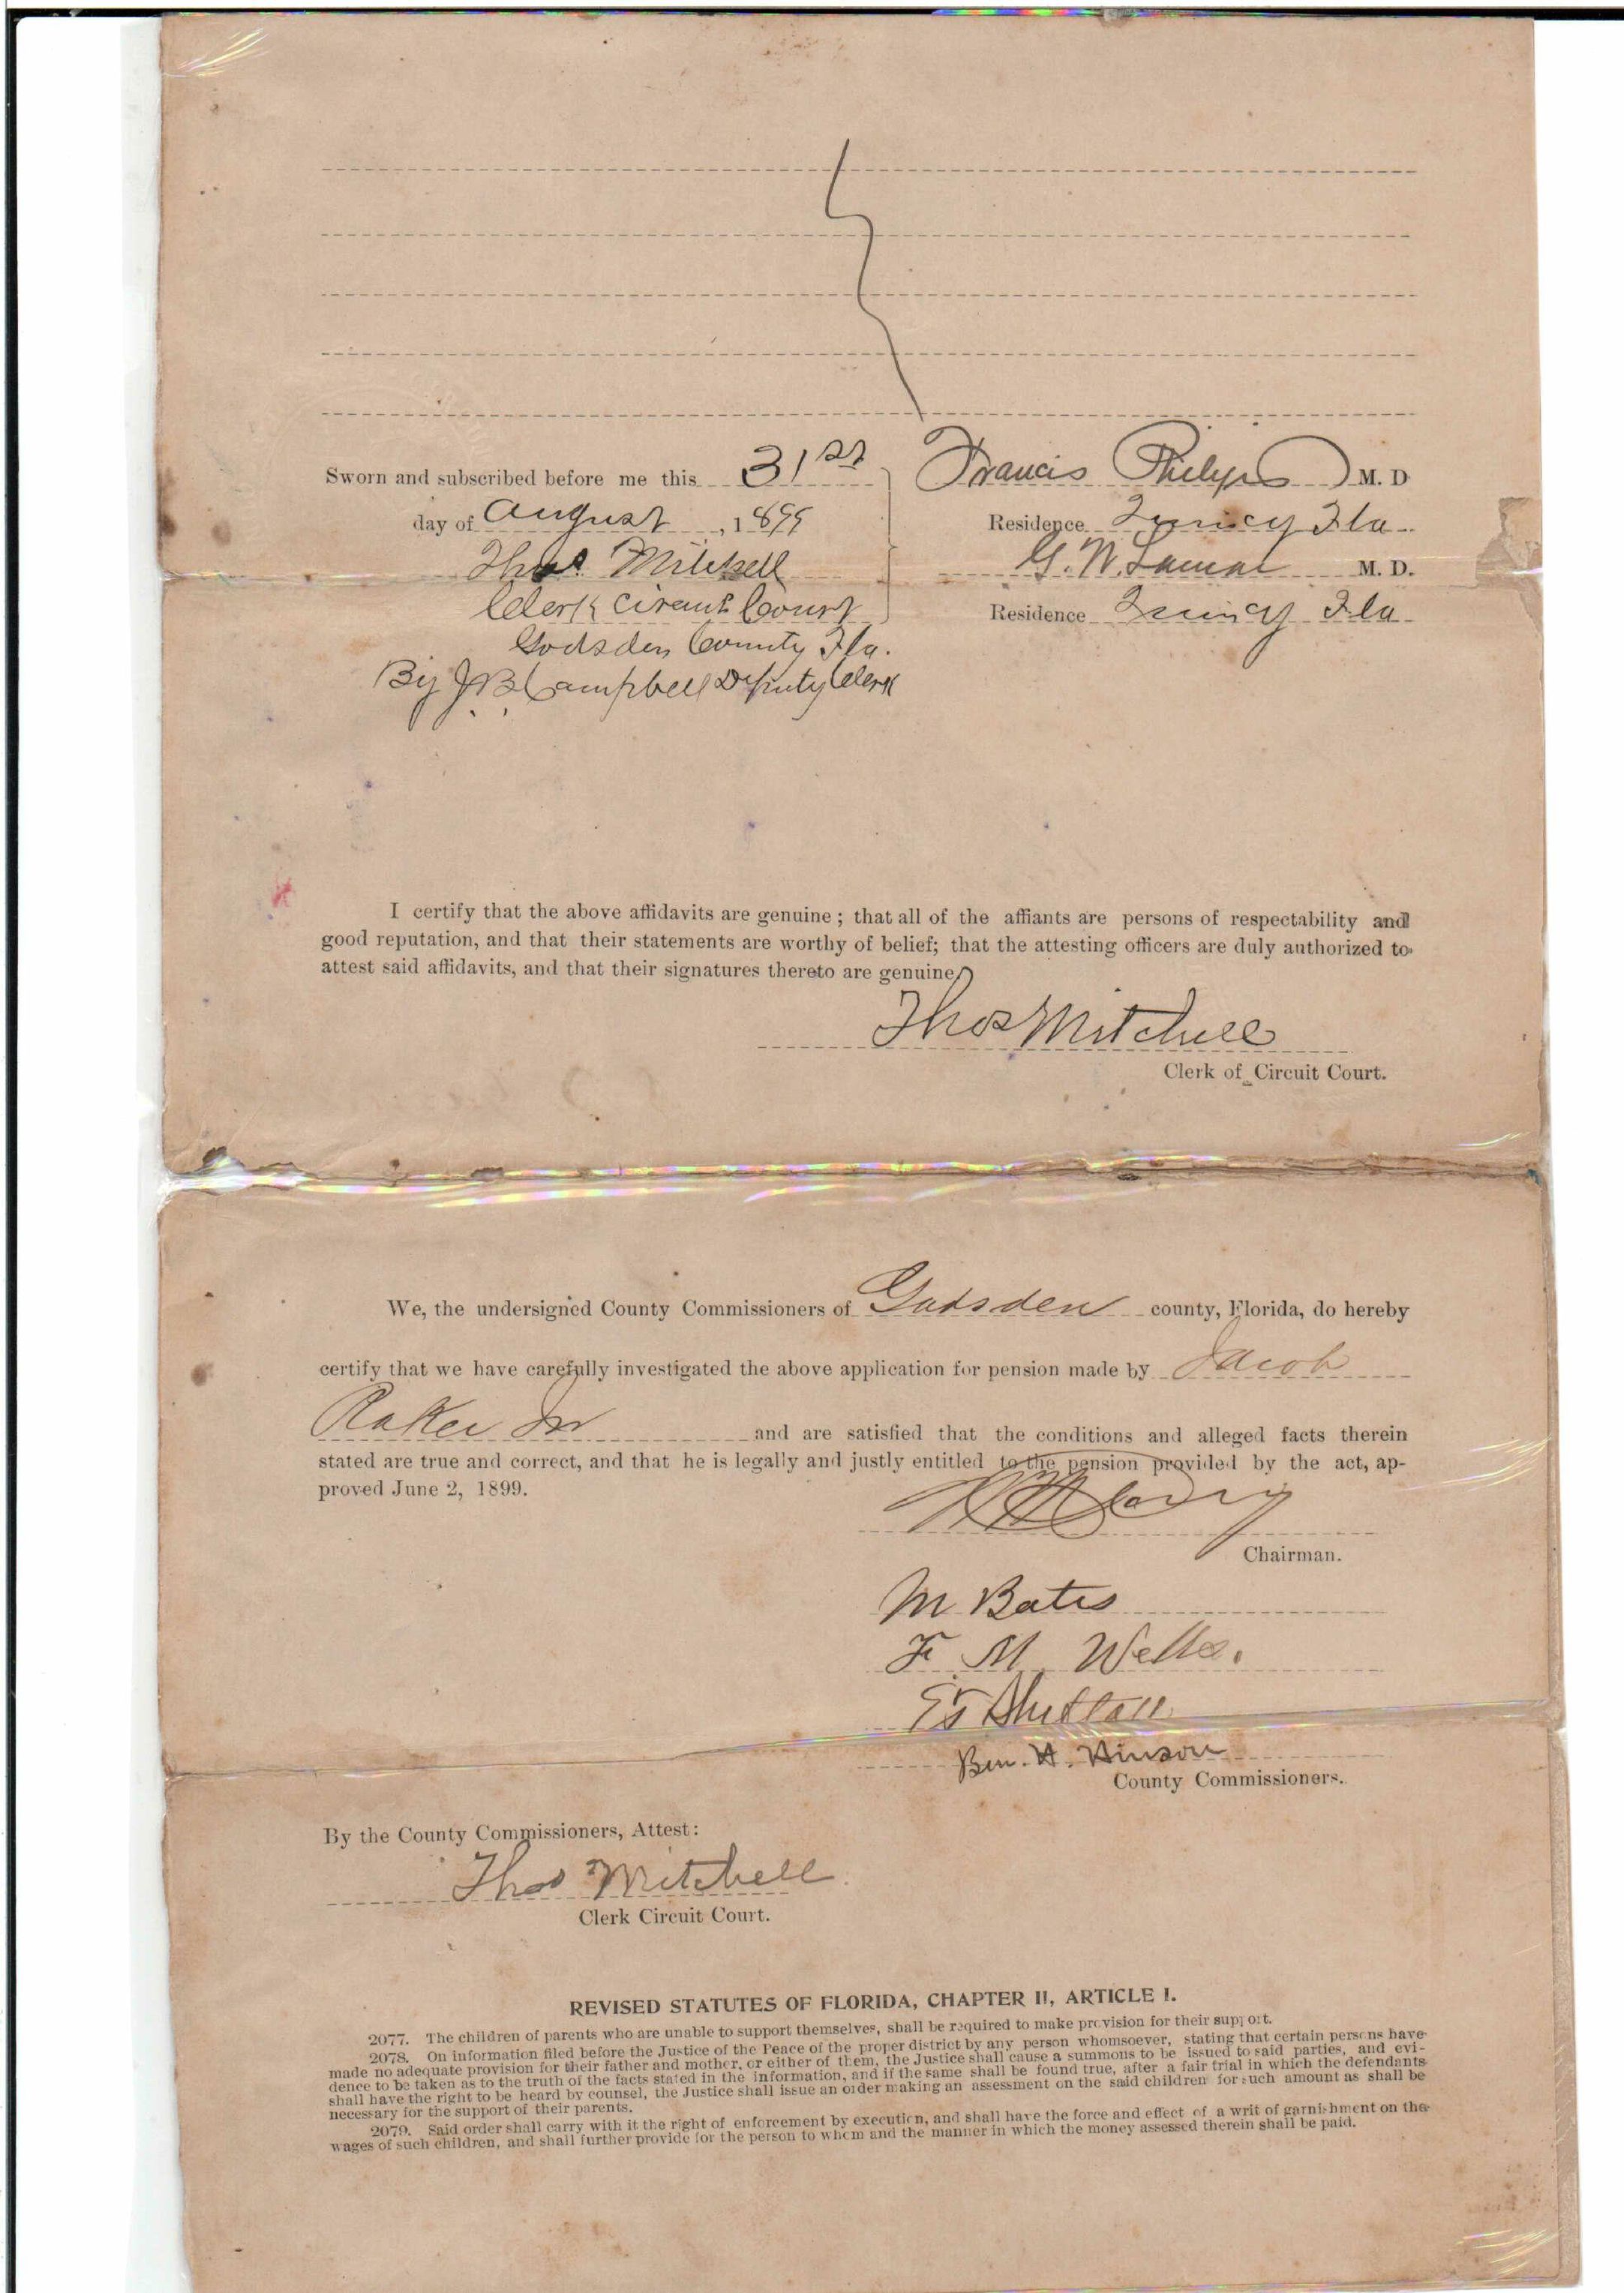 Sworn and subscribed before me this 31st
day of August, 1899
Thos Mitchell
Clerk Circuit Court
Gadsden County Fla.
By J B Campbell Deputy Clerk
Francis Philips M. D
Residence Quincy Fla
G. W. Lamar M. D.
Residence Quincy Fla
I certify that the above affidavits are genuine; that all of the affiants are persons of respectability and
good reputation, and that their statements are worthy of belief; that the attesting officers are duly authorized to
attest said affidavits, and that their signatures thereto are genuine
Thos Mitchell
Clerk of Circuit Court.
We, the undersigned County Commissioners of Gadsden county, Florida, do hereby
certify that we have carefully investigated the above application for pension made by Jacob
Raker Jr and are satisfied that the conditions and alleged facts therein
stated are true and correct, and that he is legally and justly entitled to the pension provided by the act, ap-
proved June 2, 1899.
Chairman.
M Bates
F. M. Wells.
Ben. H. Hinson
County Commissioners.
By the County Commissioners, Attest:
Thos Mitchell
Clerk Circuit Court.
REVISED STATUTES OF FLORIDA, CHAPTER II, ARTICLE I.
2077. The children of parents who are unable to support themselves, shall be required to make provision for their support.
2078. On information filed before the Justice of the Peace of the proper district by any person whomsoever, stating that certain persons have
made no adequate provision for their father and mother, or either of them, the Justice shall cause a summons to be issued to said parties, and evi-
dence to be taken as to the truth of the facts stated in the information, and if the same shall be found true, after a fair trial in which the defendants
shall have the right to be heard by counsel, the Justice shall issue an order making an assessment on the said children for such amount as shall be
necessary for the support of their parents.
2079. Said order shall carry with it the right of enforcement by execution, and shall have the force and effect of a writ of garnishment on the
wages of such children, and shall further provide for the person to whom and the manner in which the money assessed therein shall be paid.